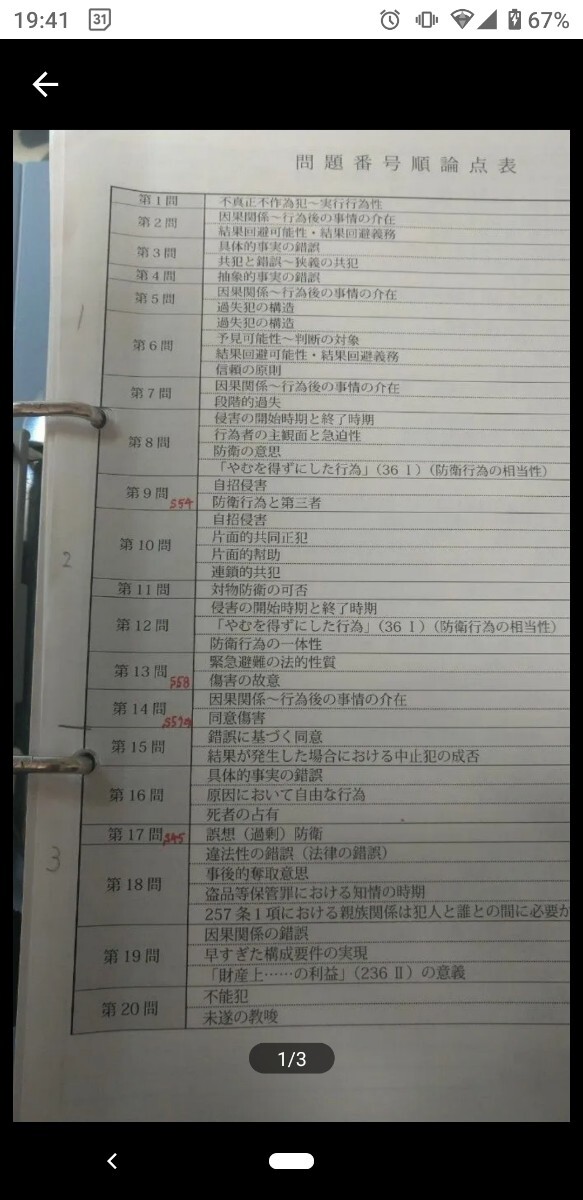 19:41
31
67%
問題番号順論点表
第1問 不真正不作為犯～実行行為性
第2問 因果関係～行為後の事情の介在
結果回避可能性・結果回避義務
第3問 具体的事実の錯誤
共犯と錯誤～狭義の共犯
第4問 抽象的事実の錯誤
第5問 因果関係～行為後の事情の介在
過失犯の構造
1
第6問 過失犯の構造
予見可能性～判断の対象
結果回避可能性・結果回避義務
信頼の原則
第7問 因果関係～行為後の事情の介在
段階的過失
第8問 侵害の開始時期と終了時期
行為者の主観面と急迫性
防衛の意思
「やむを得ずにした行為」（36 Ⅰ）（防衛行為の相当性）
第9問 自招侵害
S54 防衛行為と第三者
2
第10問 自招侵害
片面的共同正犯
片面的幇助
連鎖的共犯
第11問 対物防衛の可否
第12問 侵害の開始時期と終了時期
「やむを得ずにした行為」（36 Ⅰ）（防衛行為の相当性）
防衛行為の一体性
第13問 緊急避難の法的性質
S58 傷害の故意
第14問 因果関係～行為後の事情の介在
同意傷害
第15問 錯誤に基づく同意
結果が発生した場合における中止犯の成否
第16問 具体的事実の錯誤
原因において自由な行為
死者の占有
第17問 誤想（過剰）防衛
3
第18問 違法性の錯誤（法律の錯誤）
事後的奪取意思
盗品等保管罪における知情の時期
257条1項における親族関係は犯人と誰との間に必要か
第19問 因果関係の錯誤
早すぎた構成要件の実現
「財産上……の利益」（236 Ⅱ）の意義
第20問 不能犯
未遂の教唆
1/3